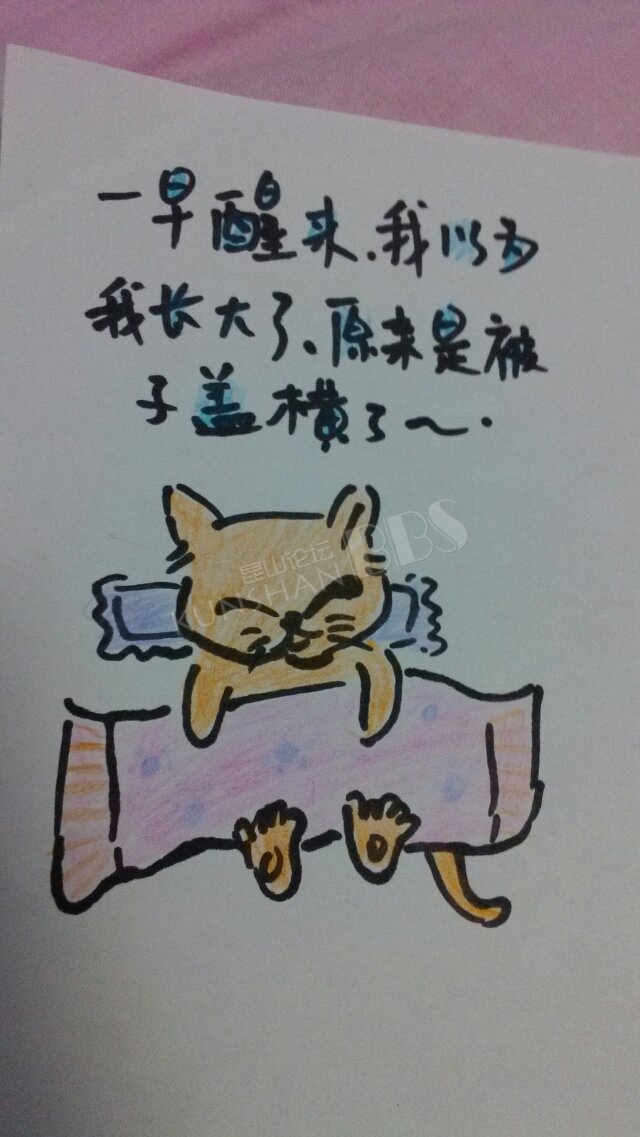 一早醒来.我以为
我长大了、原来是被
子盖横了～.
昆山论坛
KUNSHAN BBS